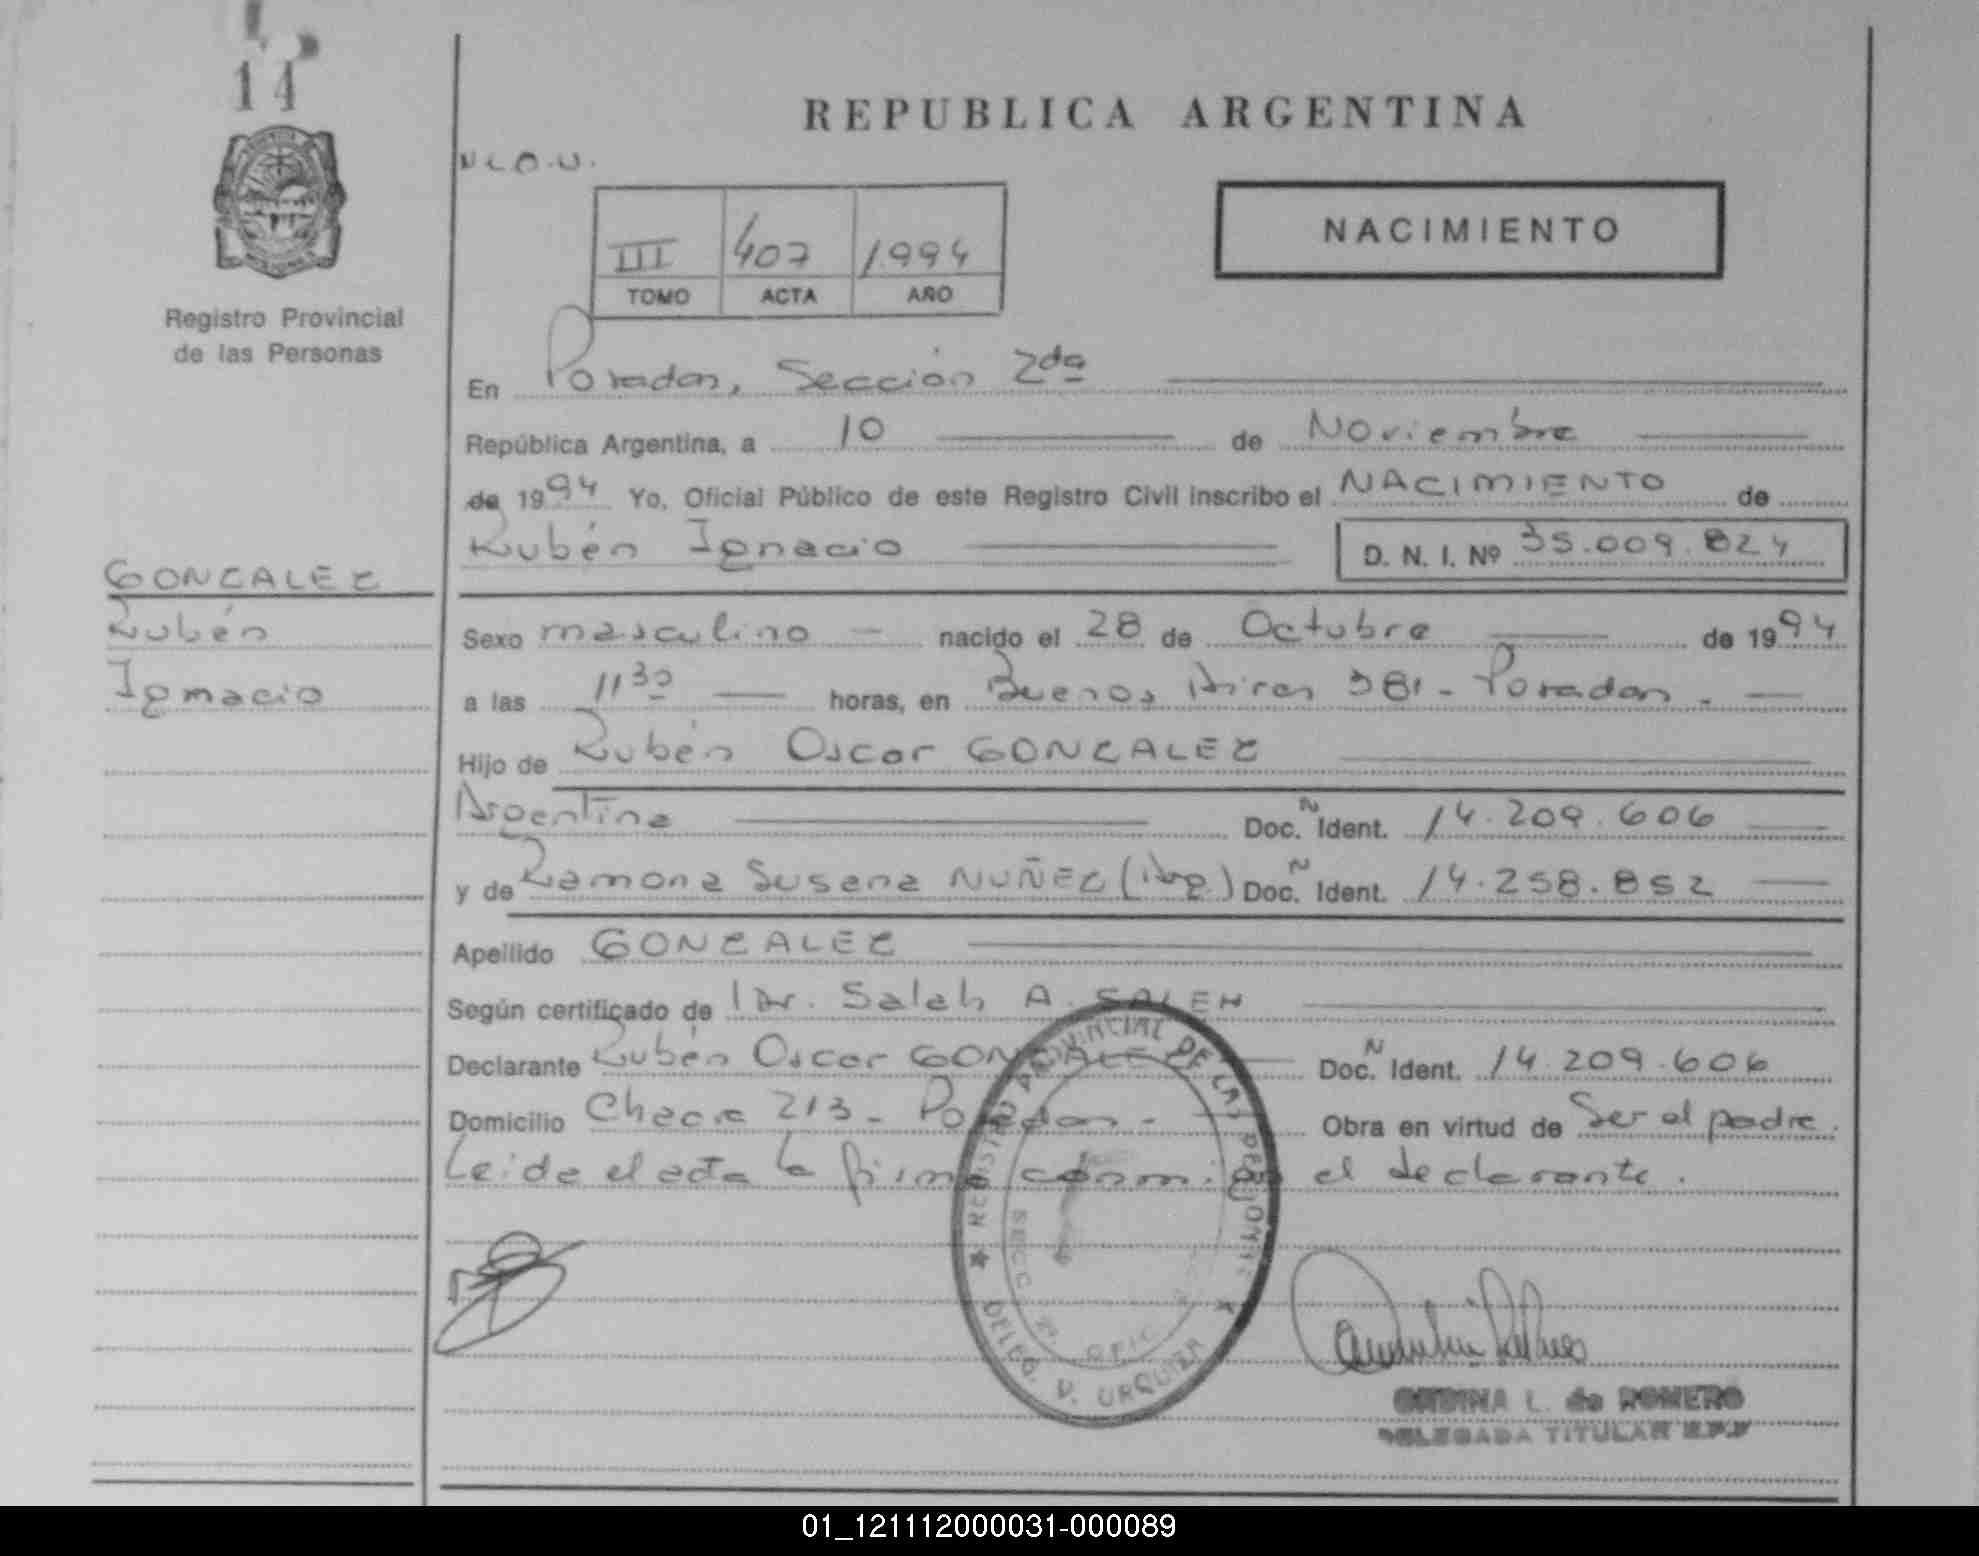 14
REPUBLICA ARGENTINA
III 407 1994
TOMO ACTA AÑO
NACIMIENTO
Registro Provincial
de las Personas
En Posadas, Sección 2da
República Argentina, a 10 de Noviembre
de 1994 Yo, Oficial Público de este Registro Civil inscribo el NACIMIENTO de
Rubén Ignacio D. N. I. Nº 35.009.824
GONZALEZ
Rubén
Ignacio
Sexo masculino nacido el 28 de Octubre de 1994
a las 11 30 horas, en Buenos Aires 381 - Posadas. -
Hijo de Rubén Oscar GONZALEZ
Argentina Doc. N Ident. 14.209.606
y de Ramona Susana NUÑEZ (Arg.) Doc. N Ident. 14.258.852
Apellido GONZALEZ
Según certificado de Dr. Saleh A. SALEH
Declarante Rubén Oscar GONZALEZ Doc. N Ident. 14.209.606
Domicilio 213 - Posadas - Obra en virtud de Ser el padre.
Leida el acta la firma conmigo el declarante.
REGISTRO PROVINCIAL DE LAS PERSONAS
SECC. 2ª
DELEG. V. URQUIZA
L. de ROMERO
DELEGADA TITULAR R.P.P.
01_121112000031-000089